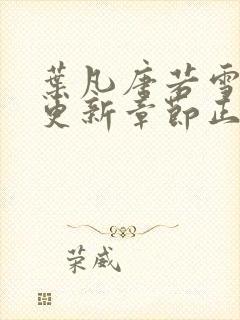 葉凡唐若雪
更新章節正
荣威